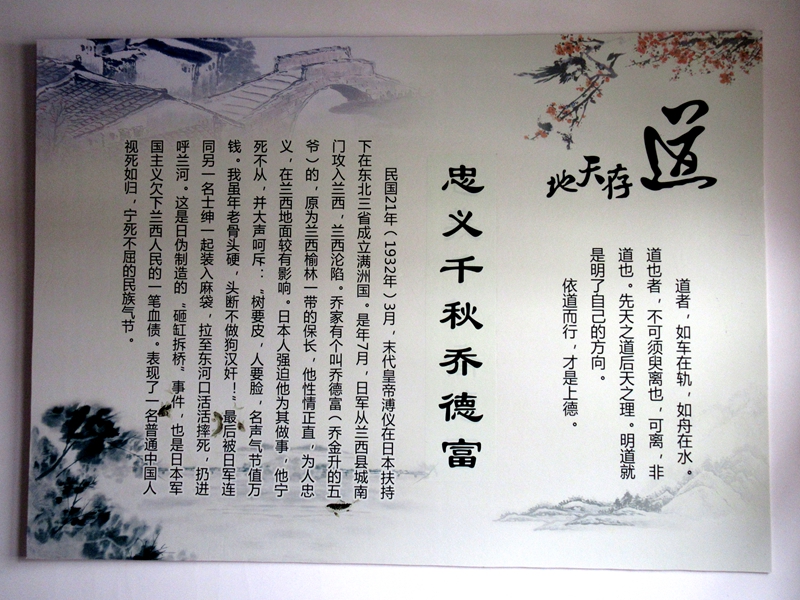 道
地天存
道者，如车在轨，如舟在水。
道也者，不可须臾离也，可离，非
道也。先天之道后天之理。明道就
是明了自己的方向。
依道而行，才是上德。
忠义千秋乔德富
民国21年（1932年）3月，末代皇帝溥仪在日本扶持
下在东北三省成立满洲国。是年7月，日军从兰西县城南
门攻入兰西，兰西沦陷。乔家有个叫乔德富（乔金升的五
爷）的，原为兰西榆林一带的保长，他性情正直，为人忠
义，在兰西地面较有影响。日本人强迫他为其做事，他宁
死不从，并大声呵斥：“树要皮，人要脸，名声气节值万
钱。我虽年老骨头硬，头断不做狗汉奸！”最后被日军连
同另一名士绅一起装入麻袋，拉至东河口活活摔死，扔进
呼兰河。这是日伪制造的“砸缸拆桥”事件，也是日本军
国主义欠下兰西人民的一笔血债。表现了一名普通中国人
视死如归，宁死不屈的民族气节。